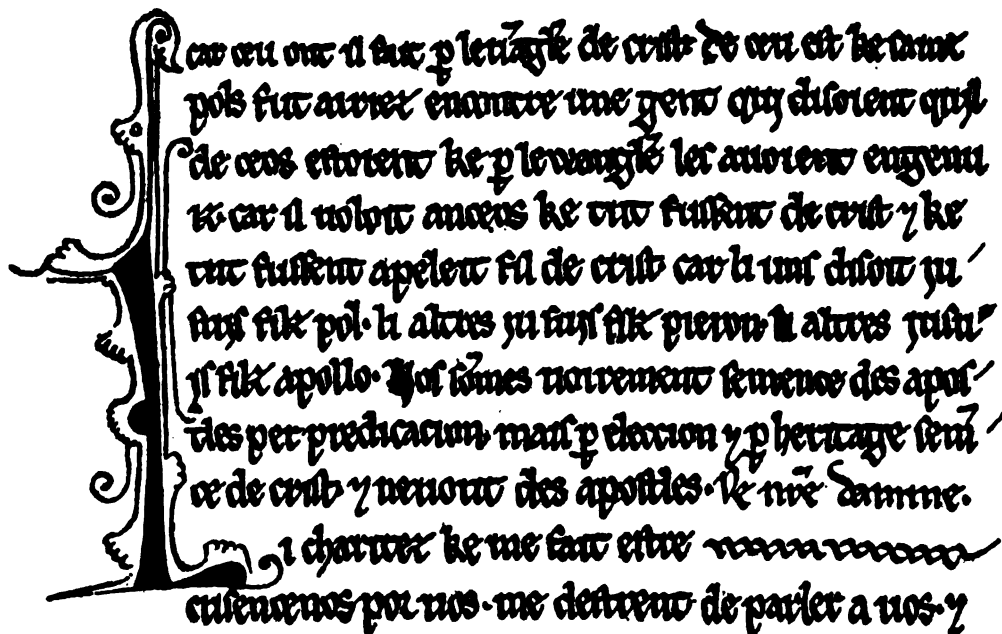 car ceu ont il fait ꝑ lewãgle de crist· De ceu est ke saint
pols fut airiez encontre une gent qui disoient quil
de ceos estoient ke ꝑ lewangle les avoient engenui
iz· car il voloit anceos ke tut fussent de crist ⁊ ke
tut fussent apeleit fil de crist car li uns disoit ju
suis filz pol· li altres ju suis filz pieron· li altres ju su
is filz apollo· Nos sõmes voirement semence des apos
tles per predicacion, mais ꝑ eleccion ⁊ ꝑ heritage semẽ
ce de crist· ⁊ nevout des apostles· De nr̃e damme·
i charitez ke me fait estre
cusencenos por vos· me destrent de parler a vos· ⁊